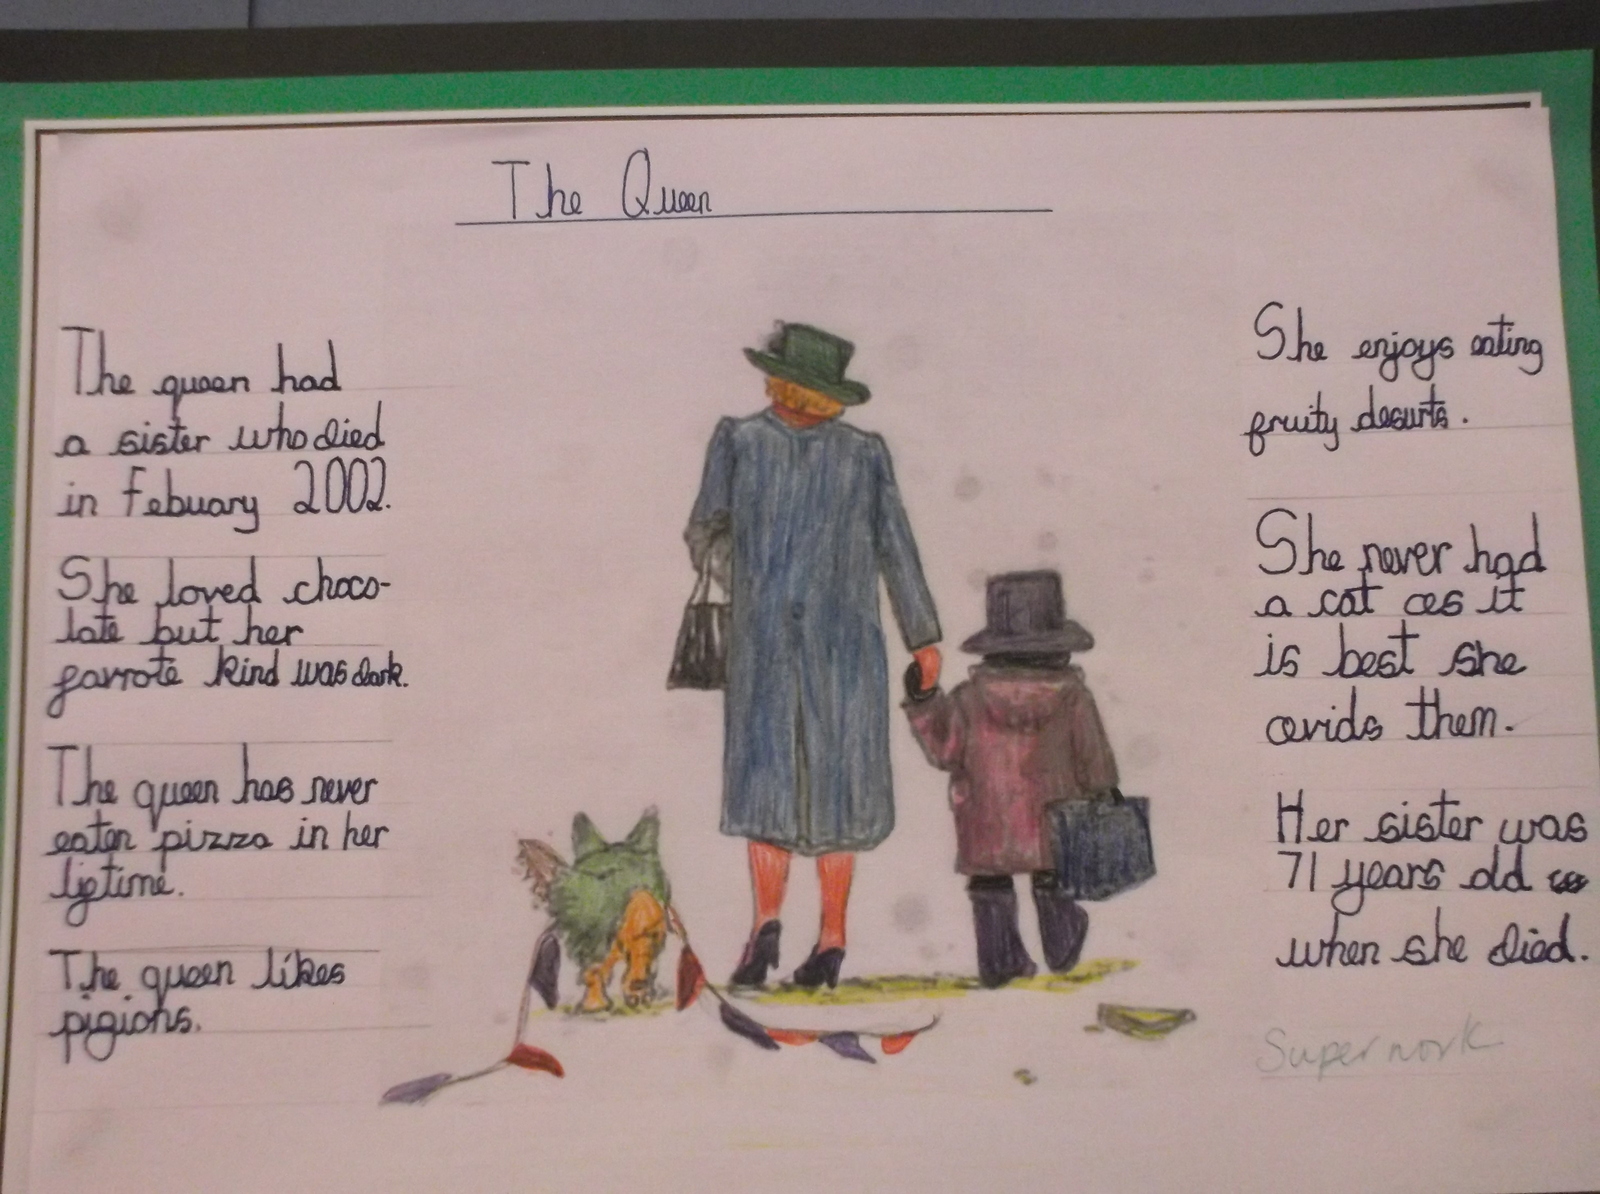 The Queen
The queen had
a sister who died
in Febuary 2002.
She loved choco-
late but her
favrote kind was dark.
The queen has never
eaten pizza in her
liftime.
The queen likes
pigions.
She enjoys eating
fruity desurts.
She never had
a cat as it
is best she
avids them.
Her sister was
71 years old
when she died.
Super work